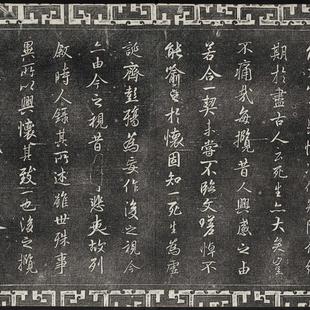 期於盡古人云死生亦大矣豈
不痛哉每攬昔人興感之由
若合一契未嘗不臨文嗟悼不
能喻之於懷固知一死生為虛
誕齊彭殤為妄作後之視今
亦由今之視昔悲夫故列
叙時人錄其所述雖世殊事
異所以興懷其致一也後之攬